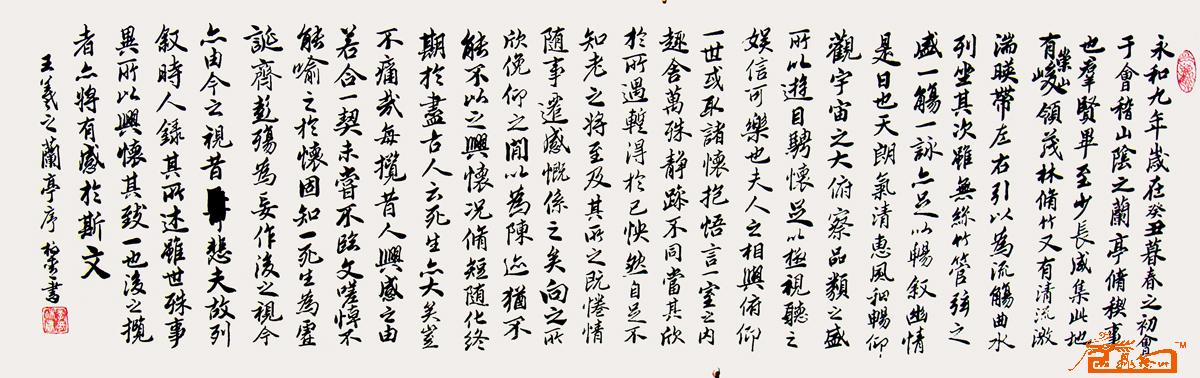 永和九年歲在癸丑暮春之初會
于會稽山陰之蘭亭脩稧事
也羣賢畢至少長咸集此地
有崇山峻領茂林脩竹又有清流激
湍暎帶左右引以為流觴曲水
列坐其次雖無絲竹管弦之
盛一觴一詠亦足以暢叙幽情
是日也天朗氣清惠風和暢仰
觀宇宙之大俯察品類之盛
所以遊目騁懷足以極視聽之
娛信可樂也夫人之相與俯仰
一世或取諸懷抱悟言一室之内
趣舍萬殊靜躁不同當其欣
於所遇暫得於己怏然自足不
知老之將至及其所之既惓情
随事遷感慨係之矣向之所
欣俛仰之閒以為陳迹猶不
能不以之興懷況脩短随化終
期於盡古人云死生亦大矣豈
不痛哉每攬昔人興感之由
若合一契未嘗不臨文嗟悼不
能喻之於懷固知一死生為虛
誕齊彭殤為妄作後之視今
亦由今之視昔悲夫故列
叙時人錄其所述雖世殊事
異所以興懷其致一也後之攬
者亦將有感於斯文
王羲之蘭亭序書